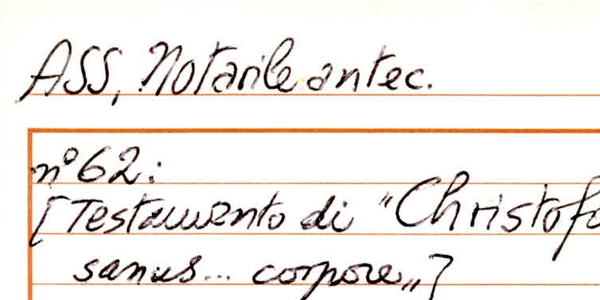 ASS, Notarile antec.
n° 62:
[Testamento di "Christofo
sanus... corpore"]